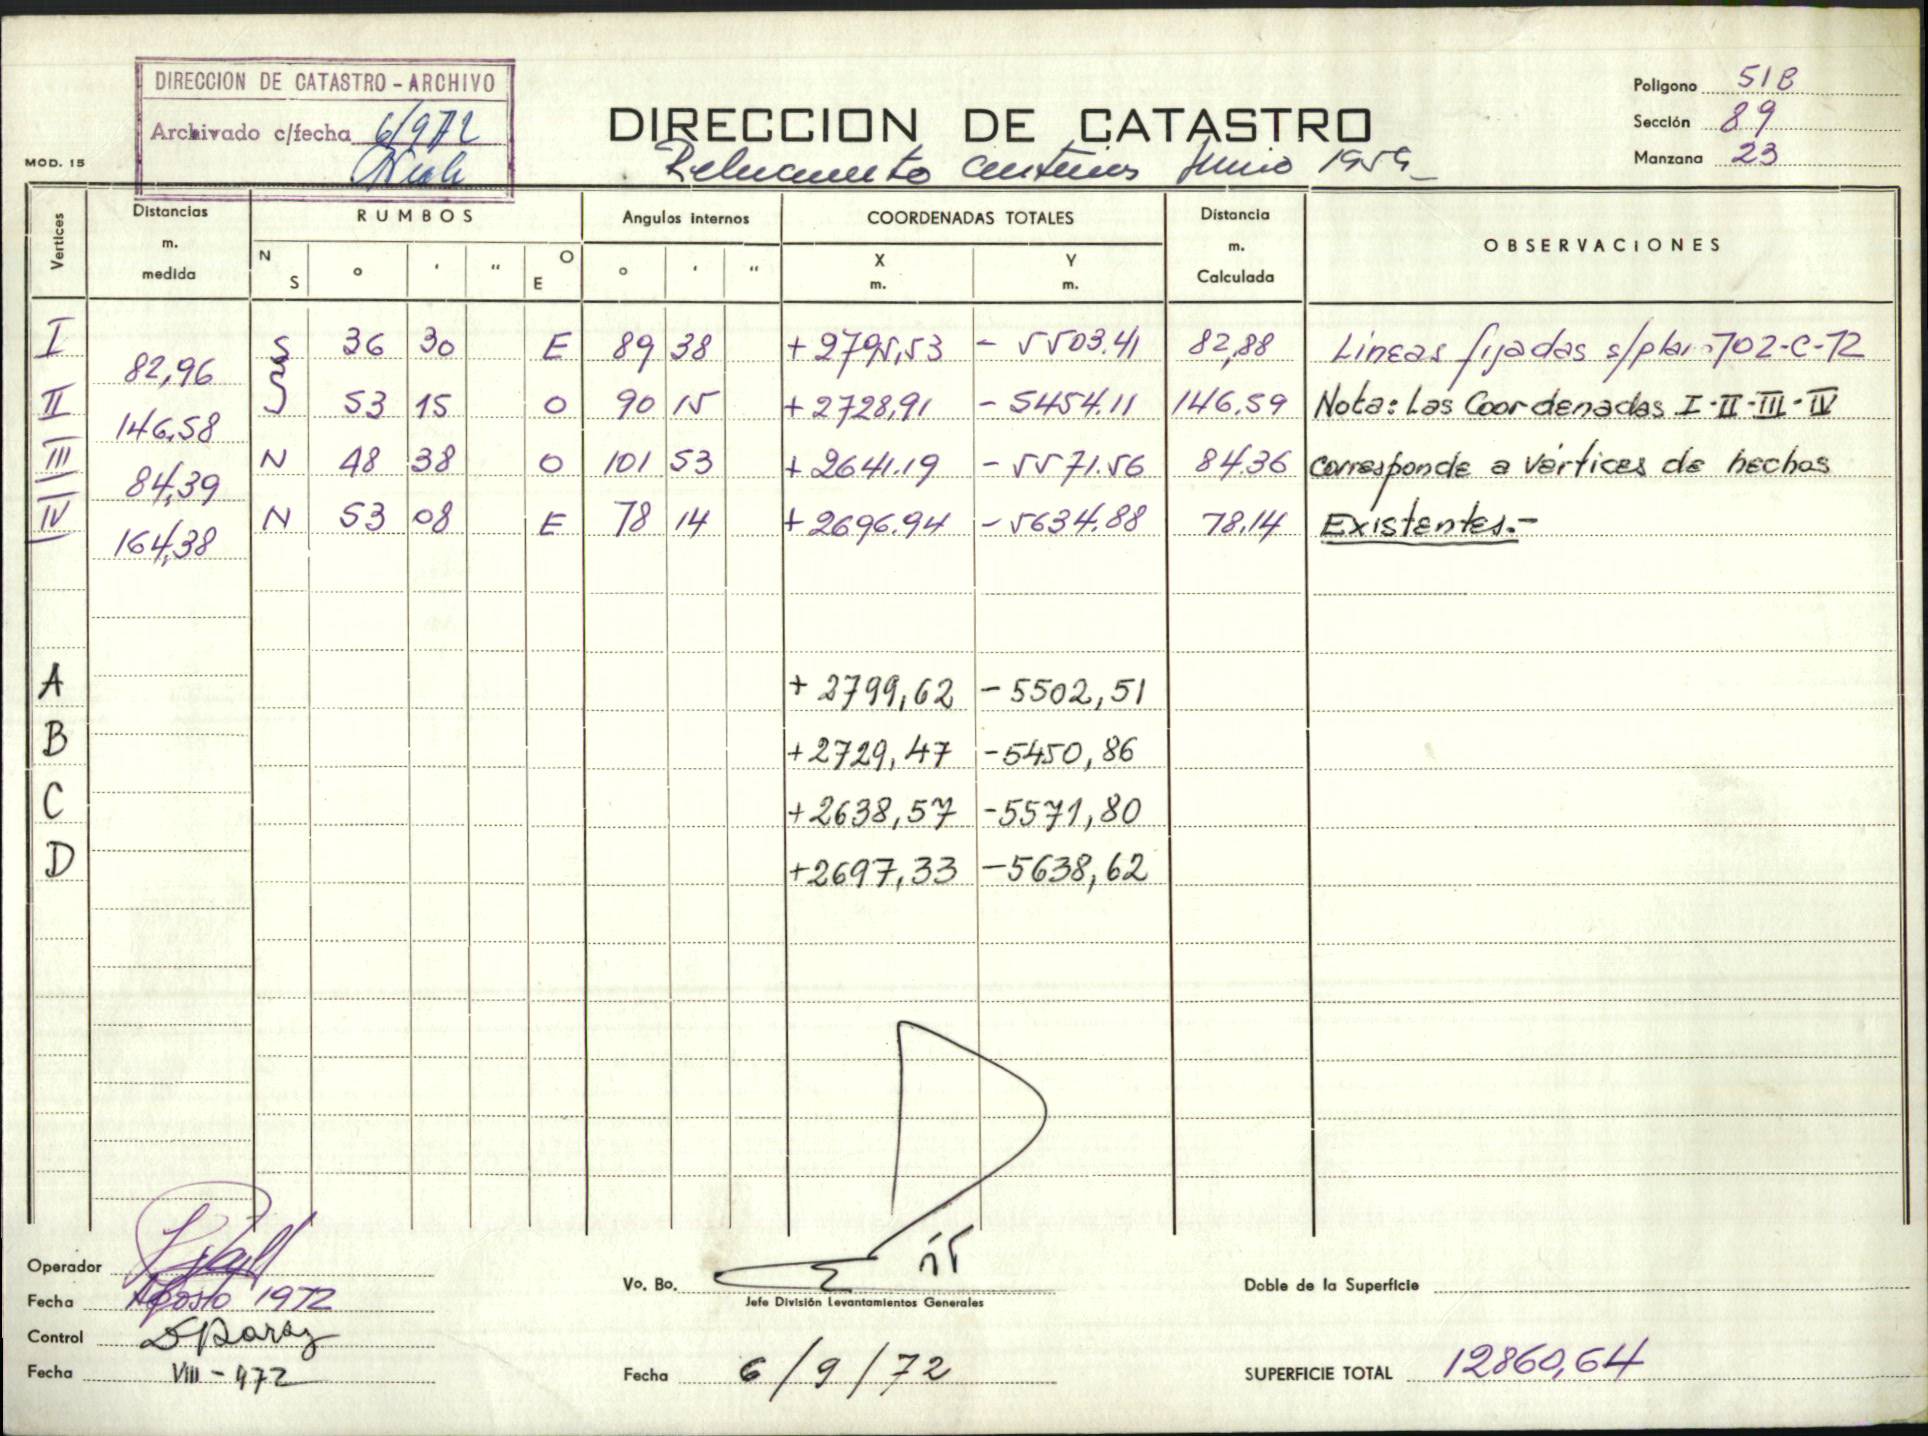 DIRECCION DE CATASTRO - ARCHIVO
Archivado c/fecha 6/9/72
DIRECCION DE CATASTRO
Junio 1959
Poligono 51B
Sección 89
Manzana 23
MOD. 15
Vertices Distancias m. medida RUMBOS N S ° ' " O E Angulos internos ° ' " COORDENADAS TOTALES X m. Y m. Distancia m. Calculada OBSERVACIONES
I S 36 30 E 89 38 +2795,53 - 5503.41 82,88 Lineas fijadas s/plano 702-C-72
82,96
II S 53 15 O 90 15 +2728,91 - 5454.11 146.59 Nota: Las Coordenadas I-II-III-IV
146.58
III N 48 38 O 101 53 +2641.19 - 5571.56 84.36 corresponde a vértices de hechos
84,39
IV N 53 08 E 78 14 +2696.94 - 5634.88 78.14 Existentes.-
164,38
A +2799,62 -5502,51
B +2729,47 -5450,86
C +2638,57 -5571,80
D +2697,33 -5638,62
Operador
Fecha Agosto 1972
Control
Fecha VIII - 972
Vo. Bo.
Jefe División Levantamientos Generales
Fecha 6/9/72
Doble de la Superficie
SUPERFICIE TOTAL 12860,64